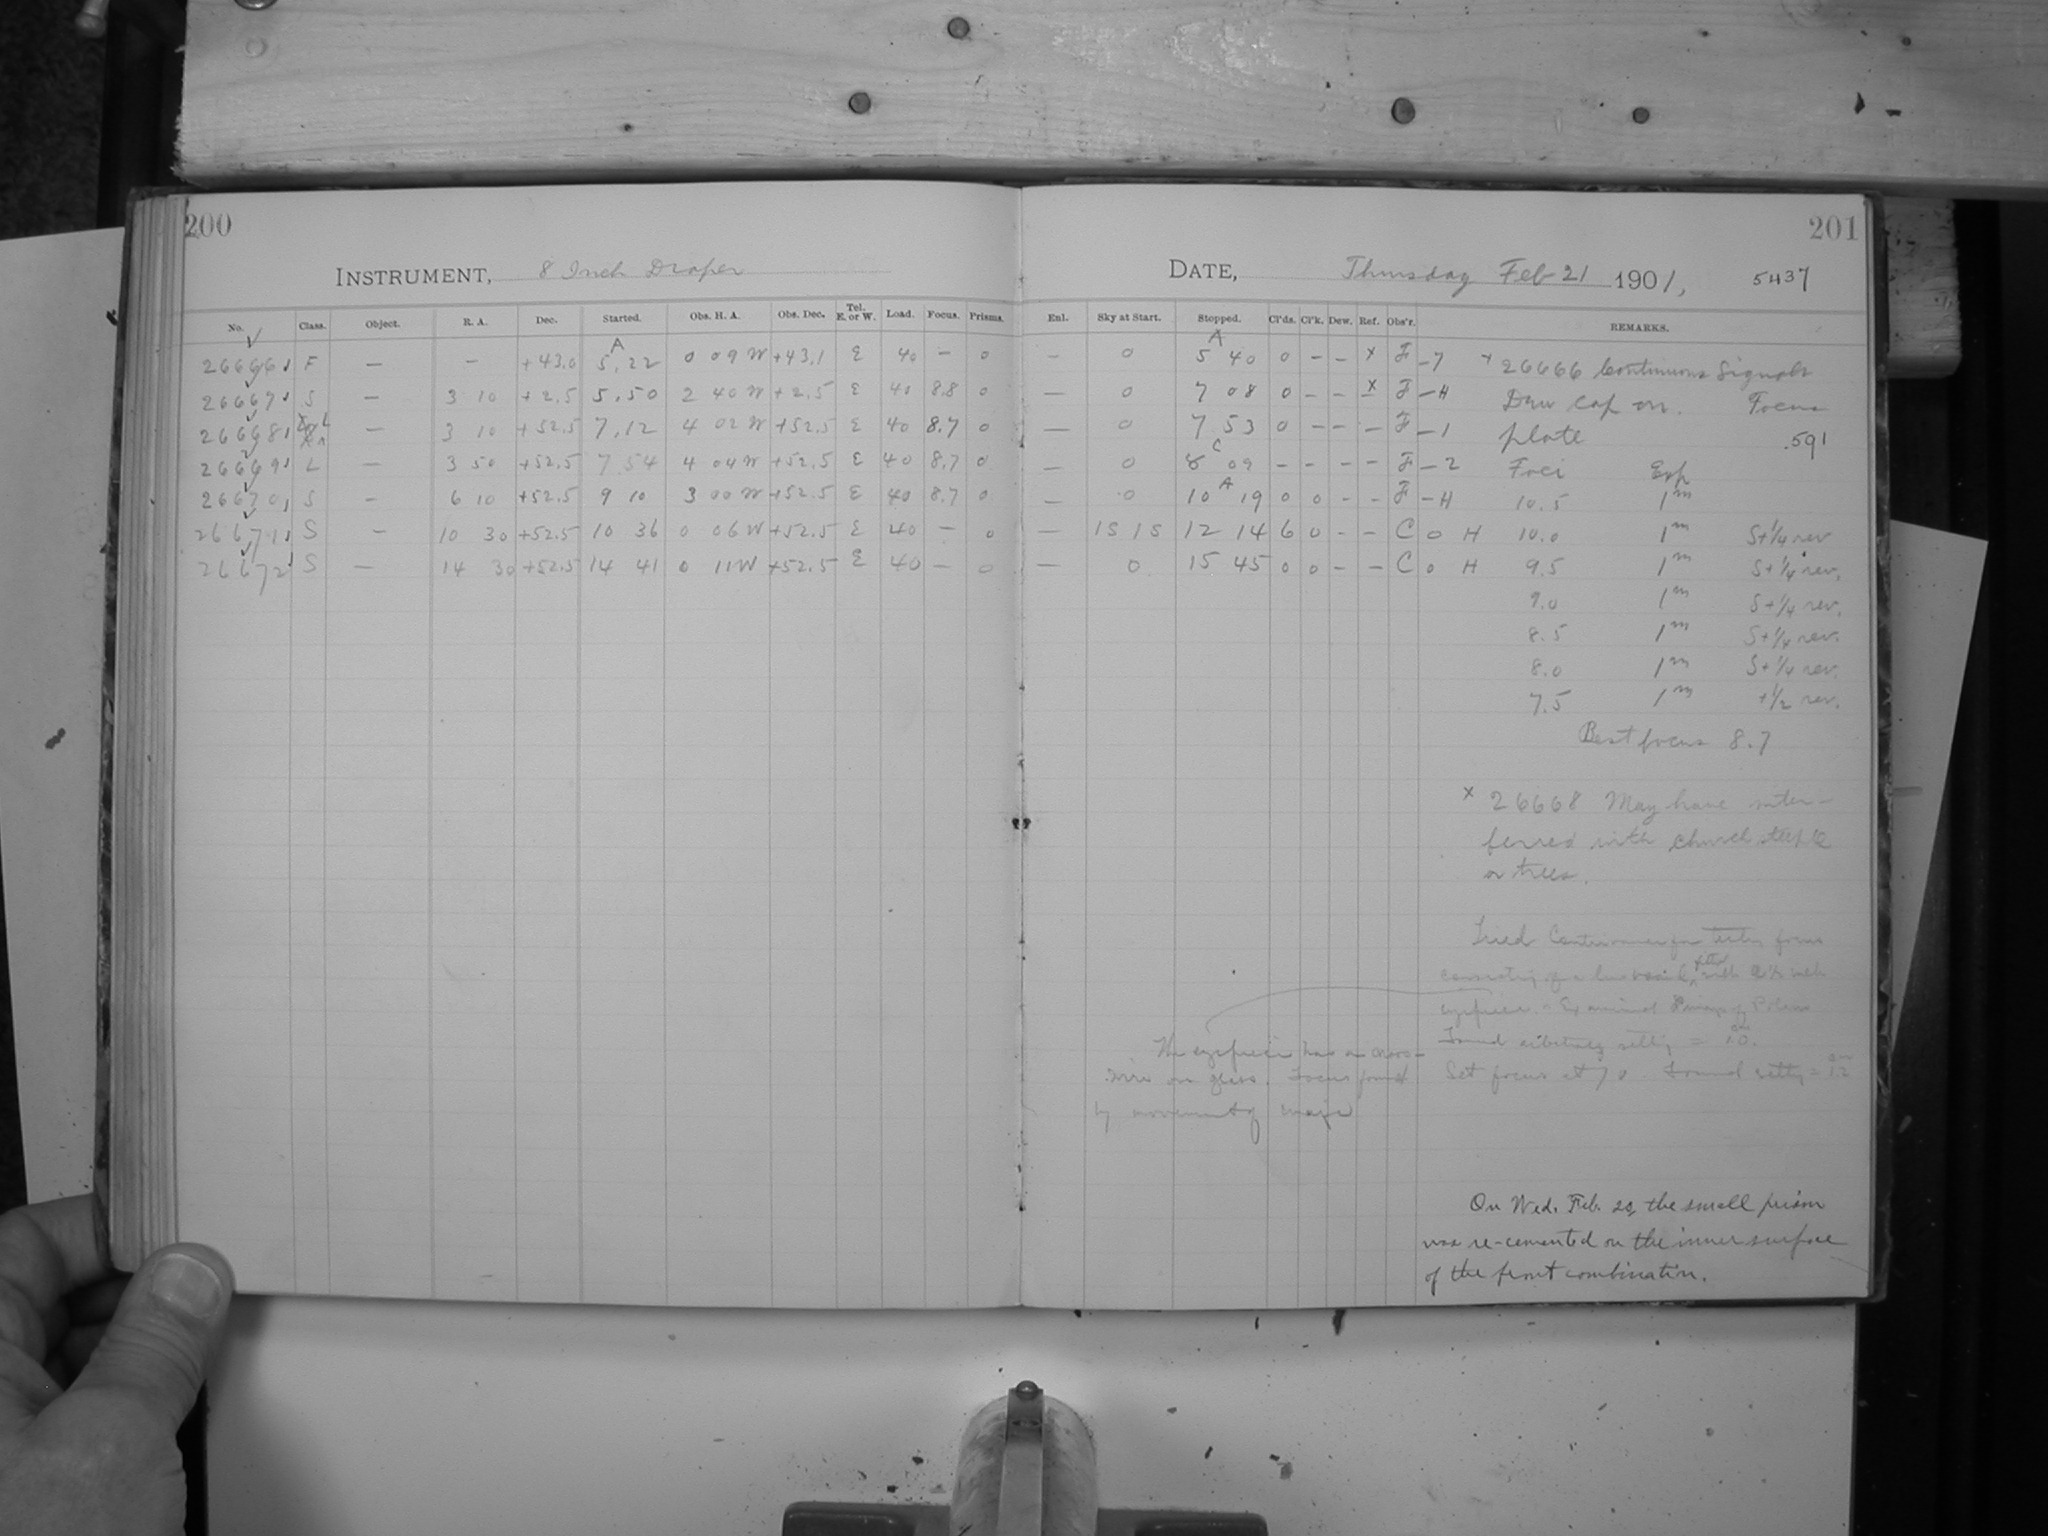 200
201
INSTRUMENT, 8 Inch Draper
DATE, Thursday Feb 21 1901, 5437
No. Class. Object. R. A. Dec. Started. Obs. H. A. Obs. Dec. Tel. E. or W. Load. Focus. Prisms. Enl. Sky at Start. Stopped. Cl'ds. Cl'k. Dew. Ref. Obs'r. REMARKS.
26666 F — — +43.0 5 22 0 09 W +43.1 E 40 — 0 — 0 5 40 0 — — x F — 7 x 26666 Continuous Signals
26667 S — 3 10 +2.5 5.50 2 40 W +2.5 E 40 8.8 0 — 0 7 08 0 — — x F — H Dew cap on. Focus
26668 L — 3 10 +52.5 7.12 4 02 W +52.5 E 40 8.7 0 — 0 7 53 0 — — — F — 1 plate .591
26669 L — 3 50 +52.5 7 54 4 04 W +52.5 E 40 8.7 0 — 0 8 09 — — — — F — 2 Foci Exp
26670 S — 6 10 +52.5 9 10 3 00 W +52.5 E 40 8.7 0 — 0 10 19 0 0 — — F — H 10.5 1m
26671 S — 10 30 +52.5 10 36 0 06 W +52.5 E 40 — 0 — 15 15 12 14 6 0 — — C 0 H 10.0 1m S+1/4 rev
26672 S — 14 30 +52.5 14 41 0 11 W +52.5 E 40 — 0 — 0 15 45 0 0 — — C 0 H 9.5 1m S+1/4 rev.
9.0 1m S+1/4 rev.
8.5 1m S+1/4 rev.
8.0 1m S+1/4 rev.
7.5 1m +1/2 rev.
Best focus 8.7
x 26668 May have inter-
ferred with church steeple
or trees.
Tried for focus
consisting of a with
eyepiece. - Examined of Polaris
Found setting = 10.
Set focus at Found setting =
The eyepiece has a cross-
wire on glass. Focus found
by movement of image
On Wed. Feb. 20, the small prism
was re-cemented on the inner surface
of the front combination.